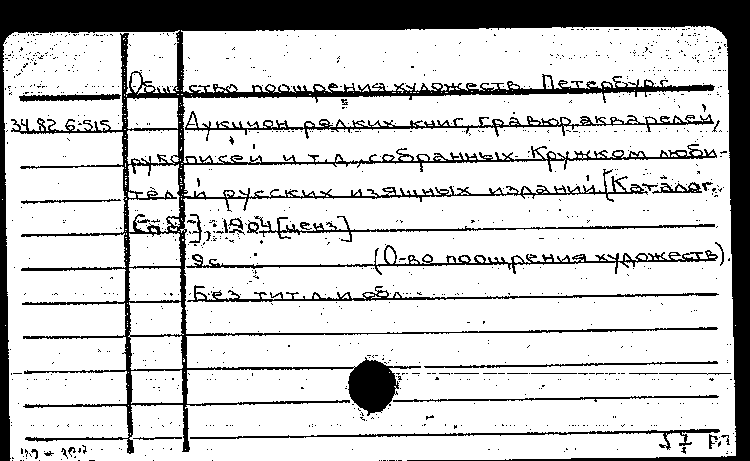 Общество поощрения художеств. Петербург.
34.82.6.515 Аукцион редких книг, гравюр, акварелей,
рукописей и т.д., собранных Кружком люби-
телей русских изящных изданий. [Каталог.
Спб], 1904 [ценз]
9 с. (О-во поощрения художеств).
Без тит. л. и обл.